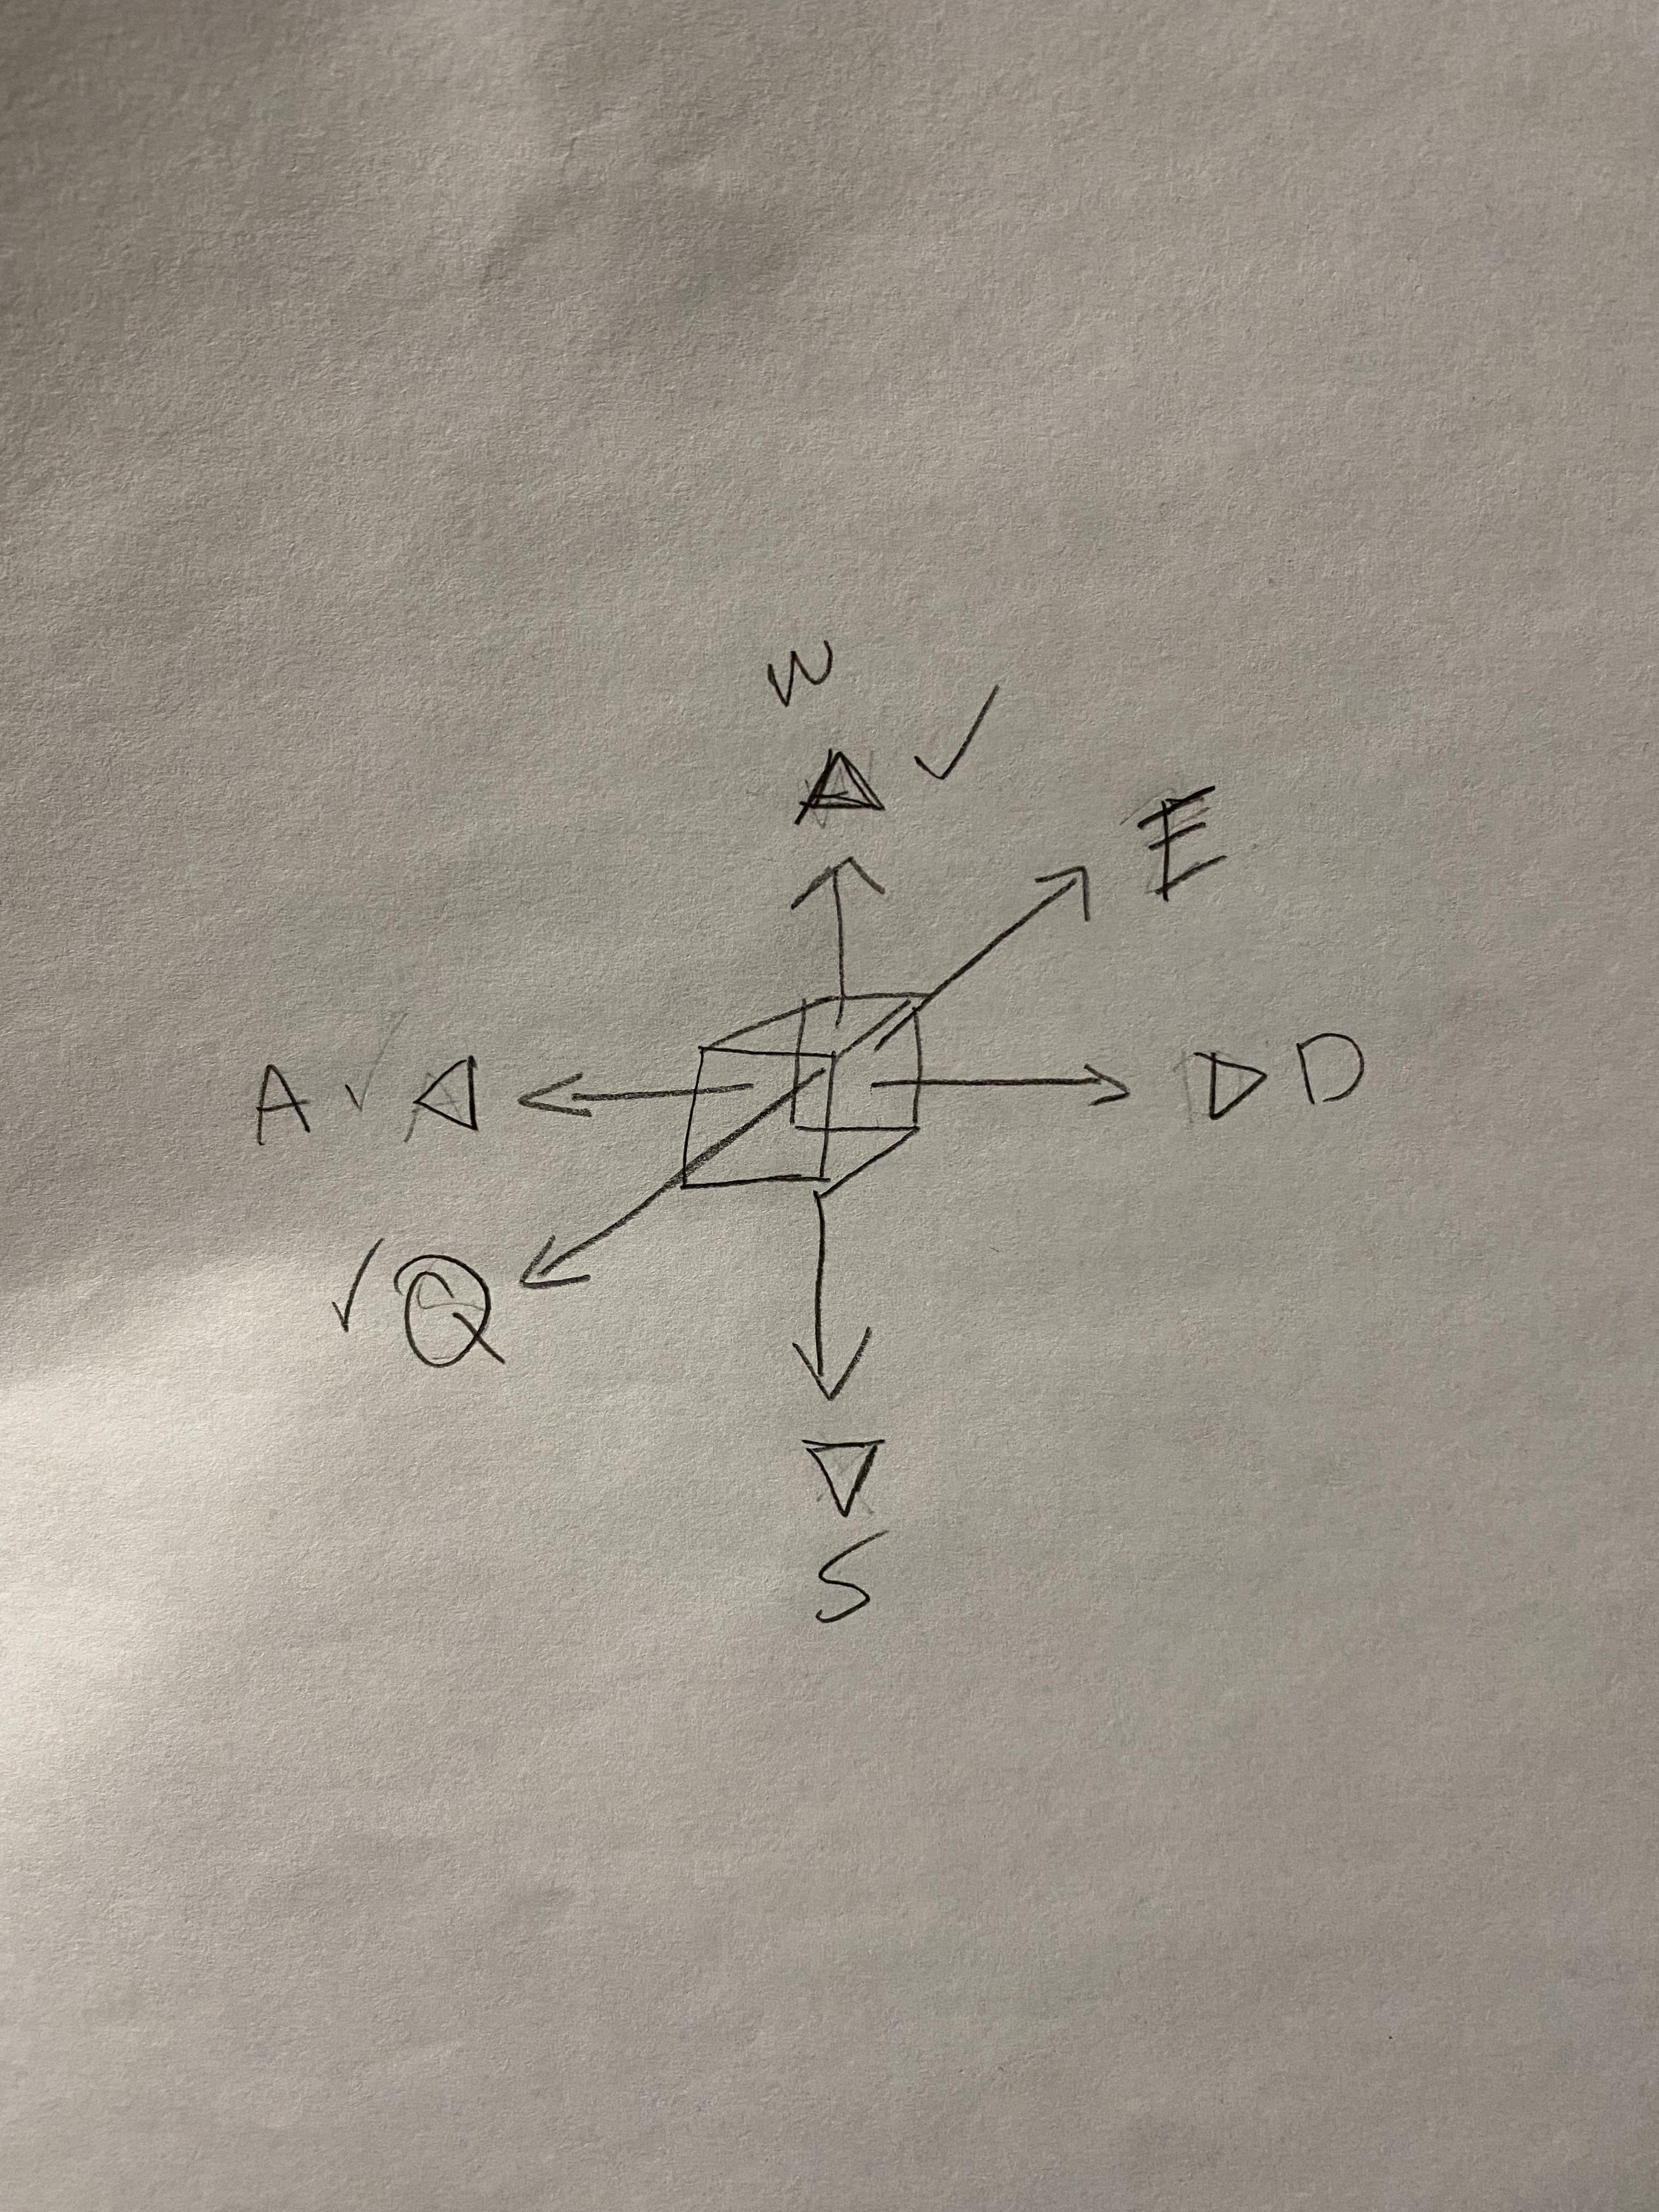 W
E
A
D
Q
S